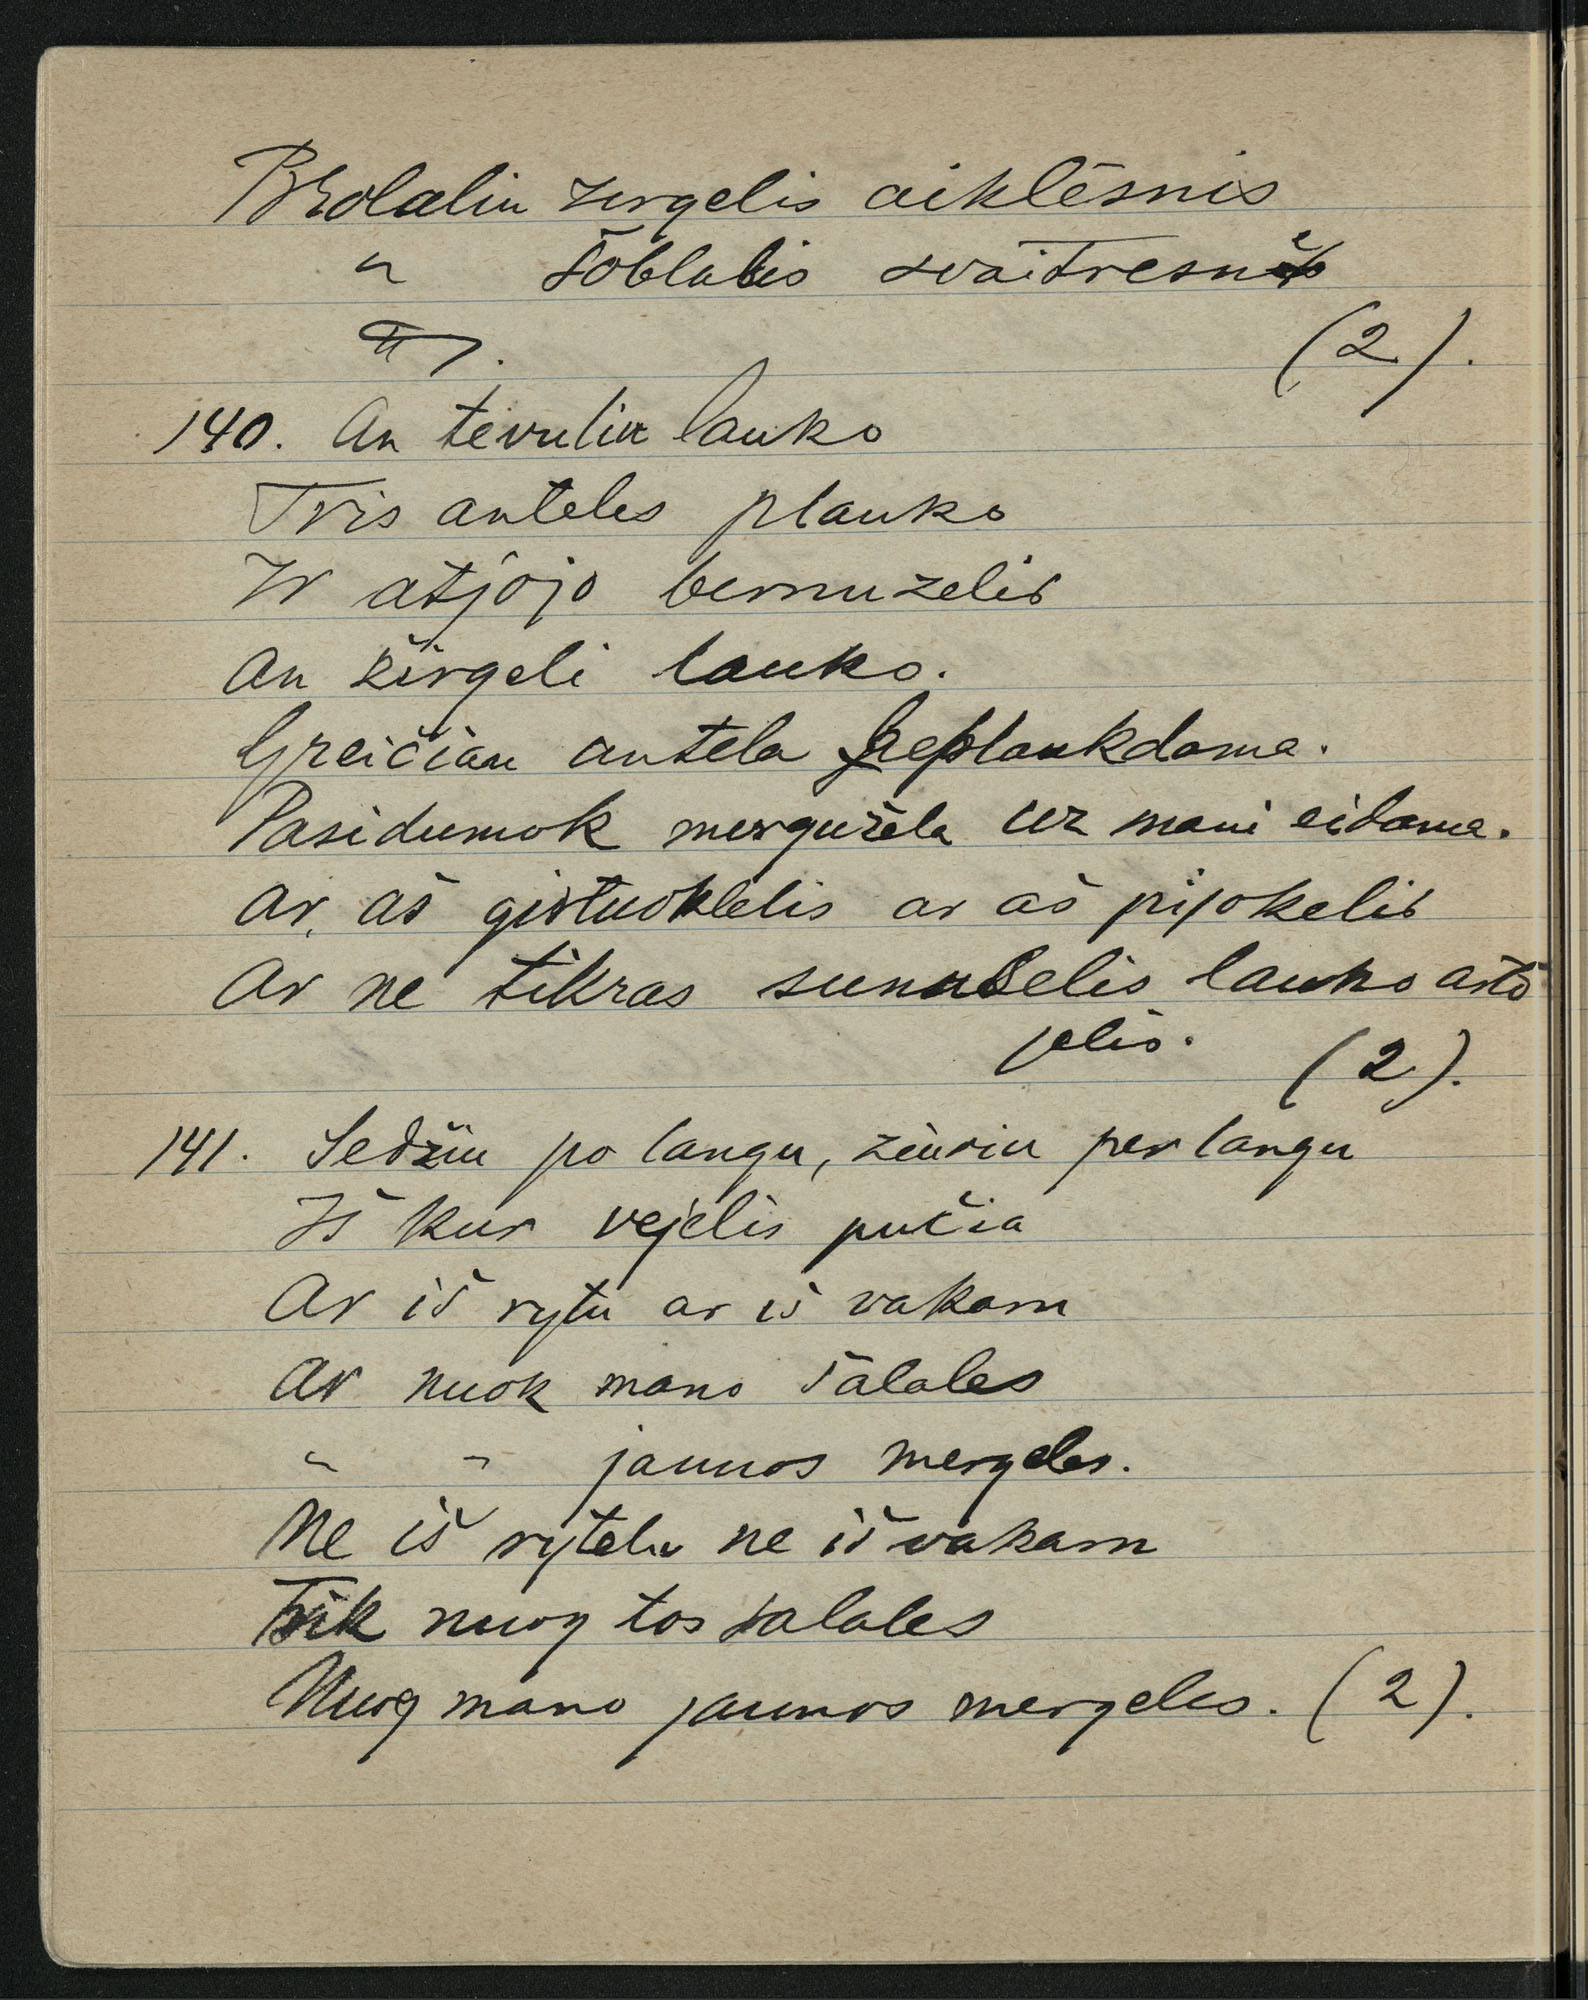 Brolaliu zergelis aiklēsnis
" šoblalis svaitresnė
(2).
140. An tevuliu lauko
Tris anteles plauko
Ir atjojo bernuzelis
An žirgeli lauko.
Greičiau antela beplaukdama.
Pasidumok mergužela uz mani eidama.
Ar aš girtuoklelis ar aš pijokelis
Ar ne tikras sunuselis lauko arto
jelis. (2).
141. Sedžiu po langu, ziuriu per langu
Iš kur vejelis pučia
Ar iš rytu ar iš vakaru
Ar nuok mano šalales
" " jaunos mergeles.
Ne iš rytelu ne iš vakaru
Tik nuog tos šalales
Nuog mano jaunos mergeles. (2).